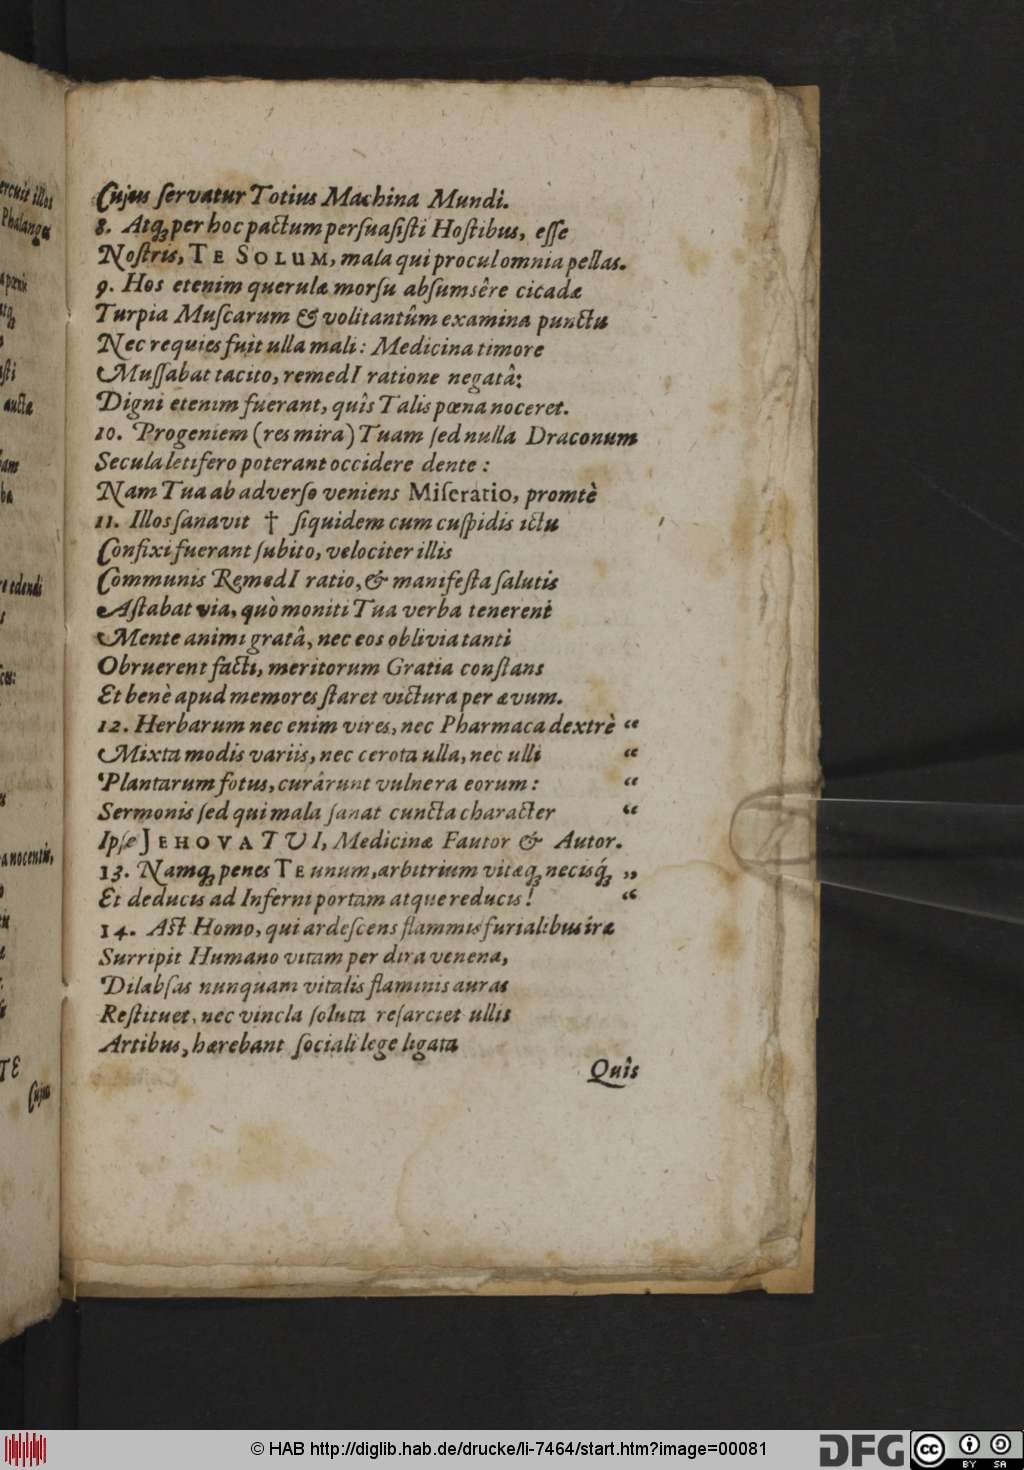 ercuit illos
Phalanges
asti
auctæ
ba
re edendi
a nocentis,
TE
Cujus
Cujus servatur Totius Machina Mundi.
8. Atq; per hoc pactum persuasisti Hostibus, esse
Nostris, TE SOLUM, mala qui procul omnia pellas.
9. Hos etenim querulæ morsu absumsêre cicadæ
Turpia Muscarum & volitantûm examina punctu
Nec requies fuit ulla mali: Medicina timore
Mussabat tacito, remedI ratione negatâ:
Digni etenim fuerant, quîs Talis pœna noceret.
10. Progeniem (res mira) Tuam sed nulla Draconum
Secula letifero poterant occidere dente:
Nam Tua ab adverso veniens Miseratio, promtè
11. Illos sanavit † siquidem cum cuspidis ictu
Confixi fuerant subito, velociter illis
Communis RemedI ratio, & manifesta salutis
Astabat via, quò moniti Tua verba tenerent
Mente animi gratâ, nec eos oblivia tanti
Obruerent facti, meritorum Gratia constans
Et benè apud memores staret victura per ævum.
12. Herbarum nec enim vires, nec Pharmaca dextrè “
Mixta modis variis, nec cerota ulla, nec ulli “
Plantarum fotus, curârunt vulnera eorum: “
Sermonis sed qui mala sanat cuncta character “
Ipse JEHOVA TUI, Medicinæ Fautor & Autor.
13. Namq; penes TE unum, arbitrium vitæq; necisq́; „
Et deducis ad Inferni portam atque reducis! “
14. Ast Homo, qui ardescens flammis furialibus iræ
Surripit Humano vitam per dira venena,
Dilabsas nunquam vitalis flaminis auras
Restituet, nec vincla soluta resarciet ullis
Artibus, hærebant sociali lege ligata
Quîs
© HAB http://diglib.hab.de/drucke/li-7464/start.htm?image=00081
DFG
cc
BY SA